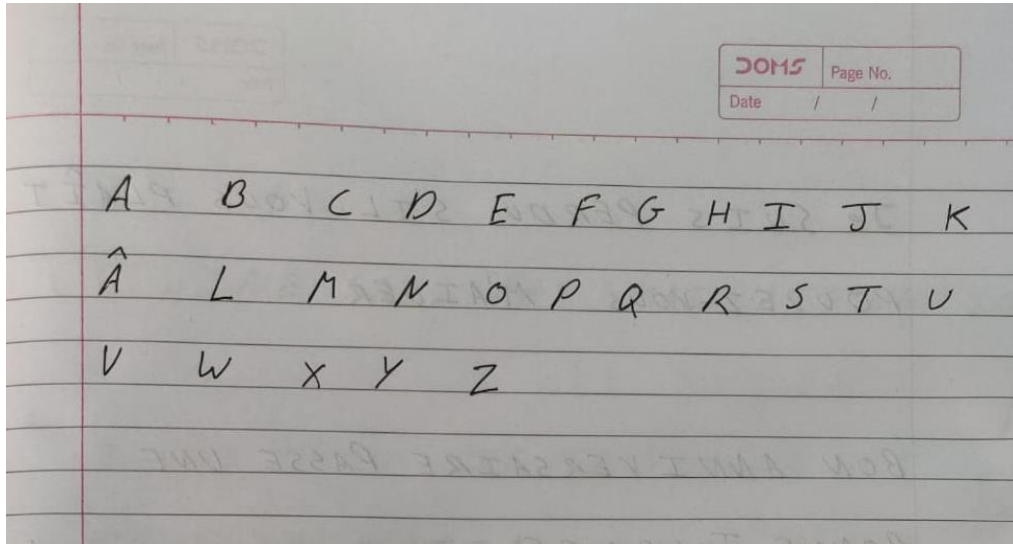 DOMS Page No.
Date / /
A B C D E F G H I J K
Â L M N O P Q R S T U
V W X Y Z